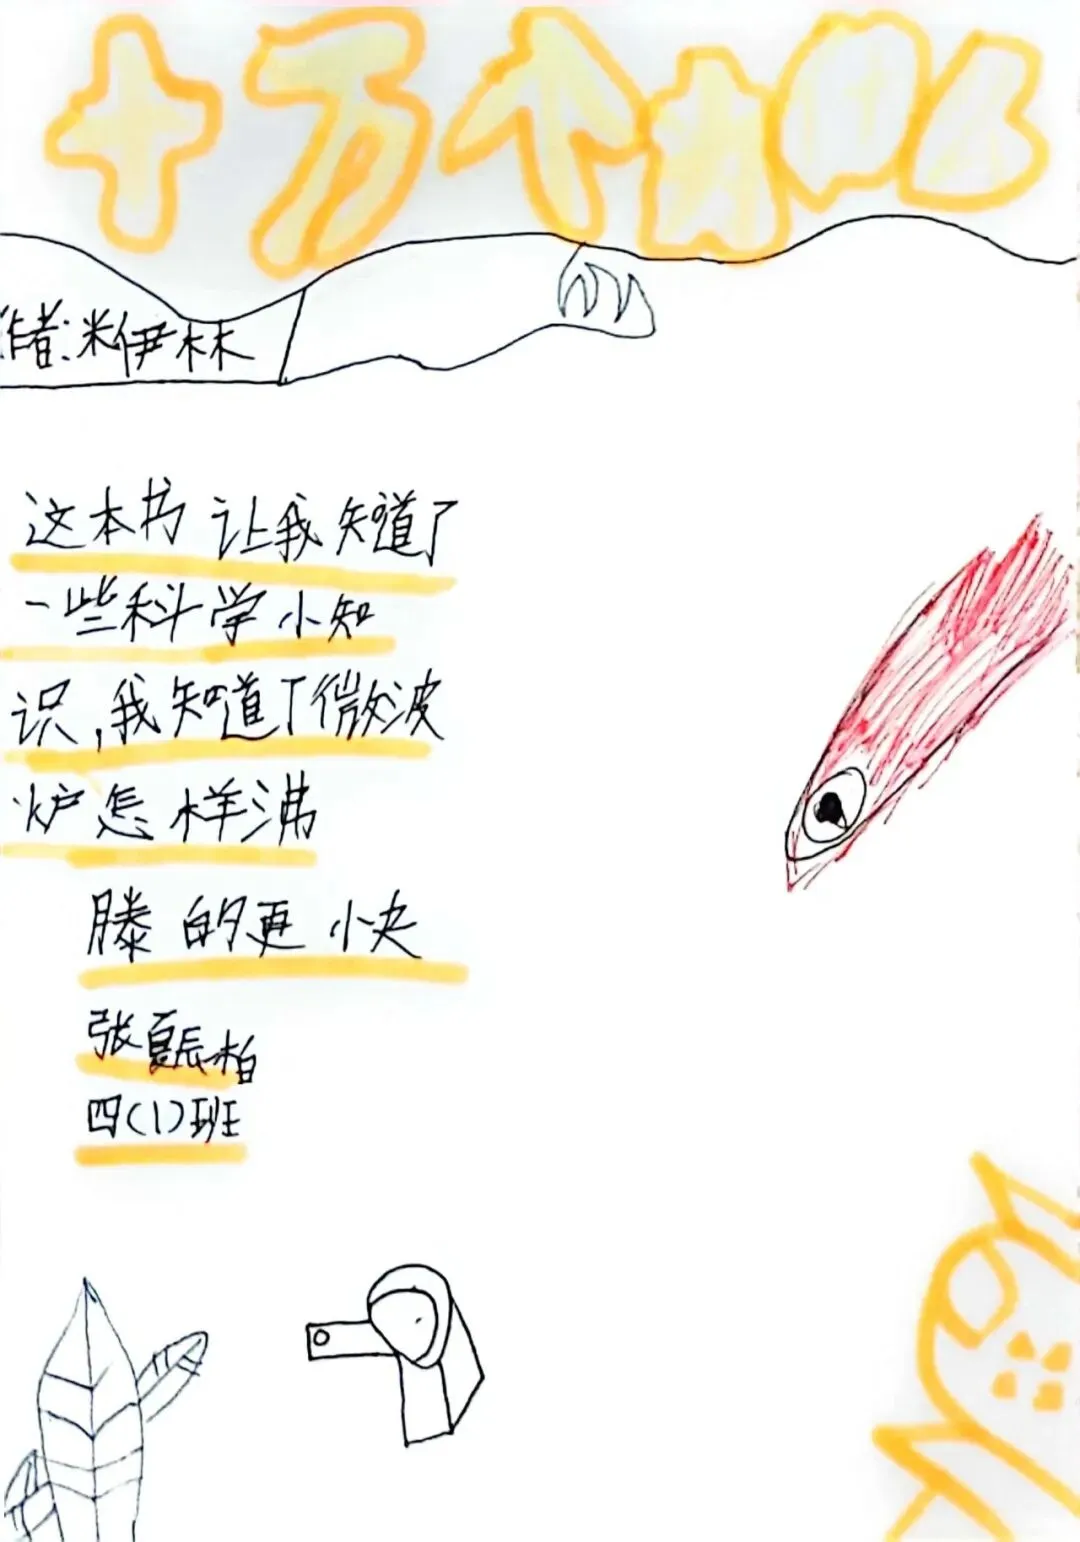 十万个为什么
作者:米伊林
这本书让我知道了
一些科学小知
识,我知道了微波
炉怎样沸
滕的更快
张夏辰柏
四(1)班